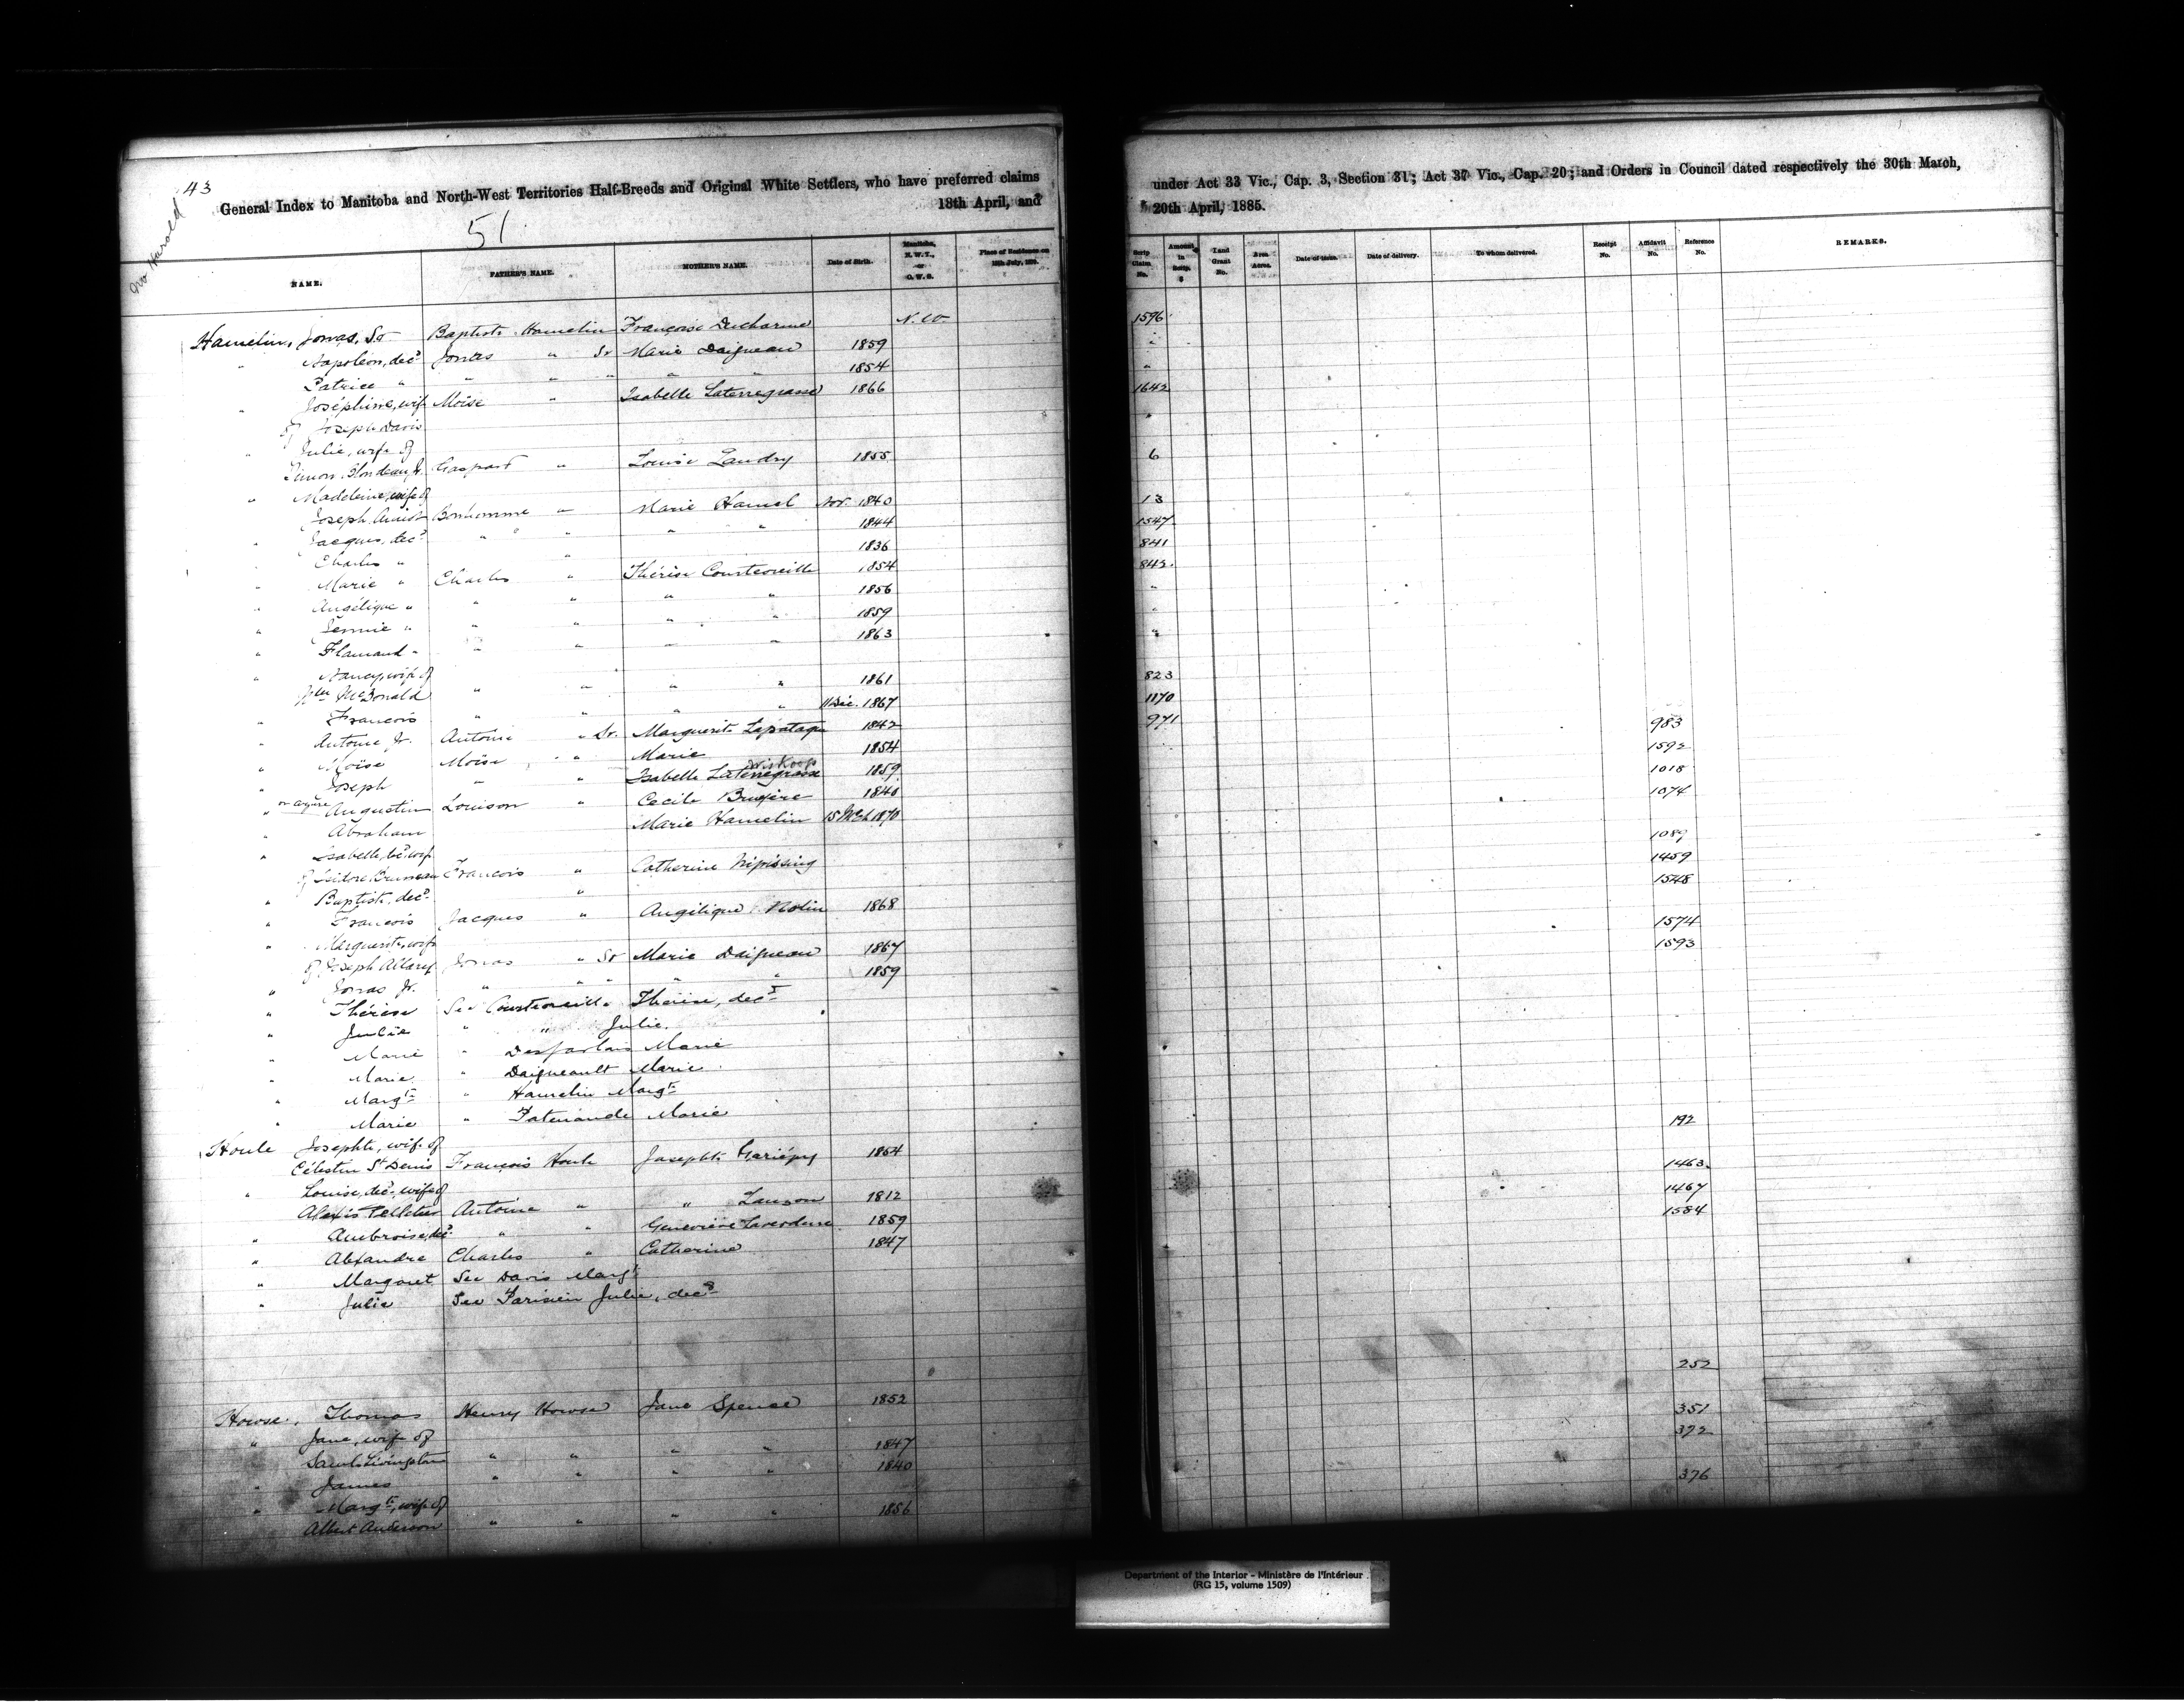 43
No Harold
General Index to Manitoba and North-West Territories Half-Breeds and Original White Settlers, who have preferred claims
18th April, and
51
NAME. FATHER'S NAME. MOTHER'S NAME. Date of Birth. Manitoba, N.W.T., or O.W.S. Place of Residence on 15th July, 1870.
Hamelin, Jonas, Sr Baptiste Hamelin Françoise Ducharme N.W.
" Napoléon, decd Jonas " Sr Marie Daigneau 1859
Patrice " " " " " " 1854
" Joséphine, wife Moïse " Isabelle Laterregrasse 1866
of Joseph Davis
" Julie, wife of
Simon Blondeau Jr. Gaspard " Louise Landry 1855
" Madeleine, wife of
Joseph Bonhomme " Marie Hamel Nov. 1840
" Jacques, decd " " " " 1844
" Charles " " 1836
" Marie " Charles " Thérèse Courteoreille 1854
" Angélique " " " " " 1856
" Jennie " " " " " 1859
" Flamand " " " " " 1863
" Nancy, wife of
McDonald " " " " 1861
" François " " " " 11 Dec. 1867
" Antoine Jr. Antoine " Sr. Marguerite Lapataque 1842
" Moïse Moïse " Marie 1854
" Joseph " " Isabelle Laterregrasse 1859
" or Azure Augustin Louison " Cecile Bruyère 1840
" Abraham Marie Hamelin 15 Mch 1870
" Isabelle, wife
of Isidore Bruneau François " Catherine Nipissing
" Baptiste, decd "
" François Jacques " Angélique Nolin 1868
" Marguerite, wife
of Joseph Allary Jonas " Sr Marie Daigneau 1867
" Jonas Jr. " " " " " 1859
" Thérèse See Courteoreille Thérèse, decd
" Julie " " Julie.
" Marie " Desjarlais Marie
" Marie " Daigneault Marie
" Margt " Hamelin Margt
" Marie " Patenaude Marie
Houle Josephte, wife of
Célestin St Denis François Houle Josephte Gariépy 1854
" Louise, decd, wife of
Alexis Pelletier Antoine " " Lauzon 1812
" Ambroise, decd " " Geneviève Laverdure 1859
" Alexandre Charles " Catherine 1847
" Margaret See Davis Margt
" Julie See Parisien Julie, decd
Howse, Thomas Henry Howse Jane Spence 1852
" Jane, wife of
Saml Livingston " " " " 1847
" James " " " " 1840
" Margt, wife of
Albert Anderson " " " " 1856
under Act 33 Vic., Cap. 3, Section 31; Act 37 Vic., Cap. 20; and Orders in Council dated respectively the 30th March,
20th April, 1885.
Scrip Claim No. Amount in Scrip. $ Land Grant No. Area Acres. Date of issue. Date of delivery. To whom delivered. Receipt No. Affidavit No. Reference No. REMARKS.
1596
"
"
1642
"
6
13
1547
841
842
"
"
"
823
1170
971 983
1592
1018
1074
1089
1459
1548
1574
1593
192
1463
1467
1584
252
351
372
376
Department of the Interior - Ministère de l'Intérieur
(RG 15, volume 1509)